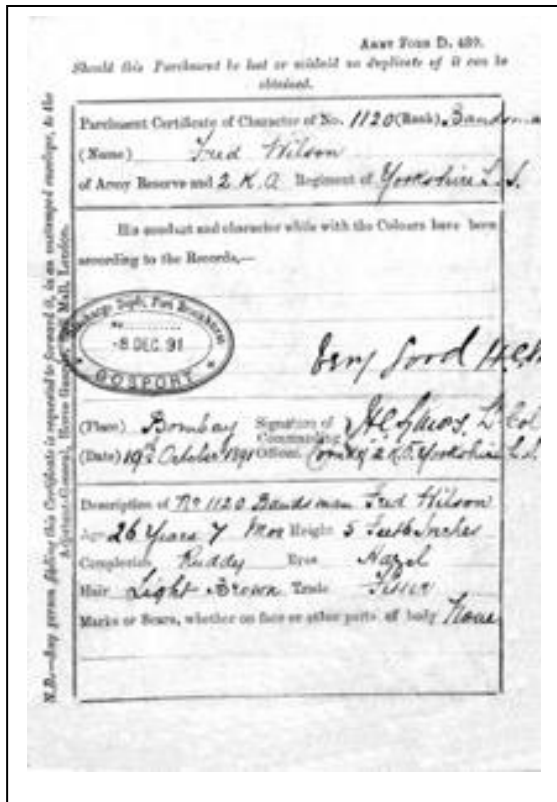 ARMY FORM D. 489.
Should this Parchment be lost or mislaid no duplicate of it can be
obtained.
Parchment Certificate of Character of No. 1120 (Rank) Bandsma
(Name) Fred Wilson
of Army Reserve and 2 K.O. Regiment of Yorkshire L.I.
His conduct and character while with the Colours have been
according to the Records,—
Discharge Depôt, Fort Brockhurst
8 DEC. 91
GOSPORT
Very Good
(Place) Bombay Signature of Lt Col
Commanding
(Date) 19th October 1891 Officer Comdg 2 K.O. Yorkshire L.I.
Description of No 1120 Bandsman Fred Wilson
Age 26 Years 7 Mos Height 5 Feet 6 Inches
Complexion Ruddy Eyes Hazel
Hair Light Brown Trade
Marks or Scars, whether on face or other parts of body None
N.B.—Any person finding this Certificate is requested to forward it, in an unstamped envelope, to the
Adjutant-General, Horse Guards, Mall, London.